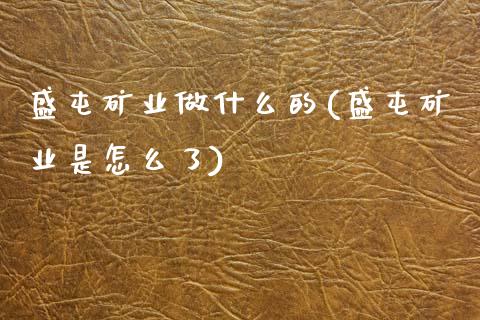 盛屯矿业做什么的(盛屯矿
业是怎么了)